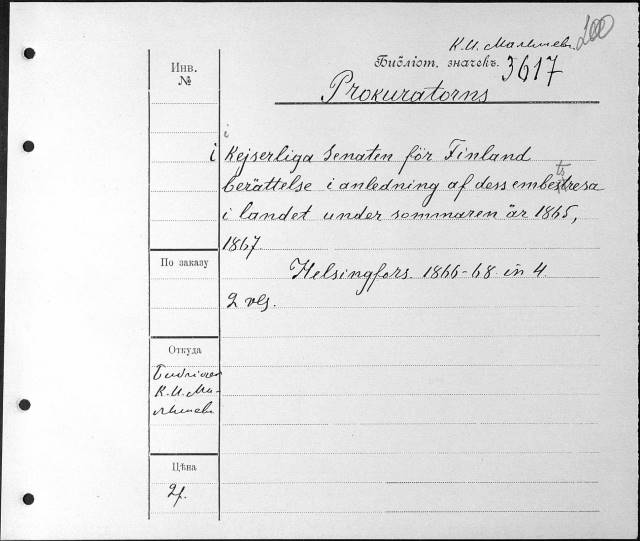 К.И. Малышева. 200
Библіот. значекъ. 3617
Prokuratorns
Инв.
№
i
i Kejserliga Senaten för Finland
berättelse i anledning af dess embetsresa
i landet under sommaren år 1865,
1867.
Helsingfors. 1866-68 in 4.
2 vls.
По заказу
Откуда
К.И. Ма-
лышева
Цѣна
2 р.